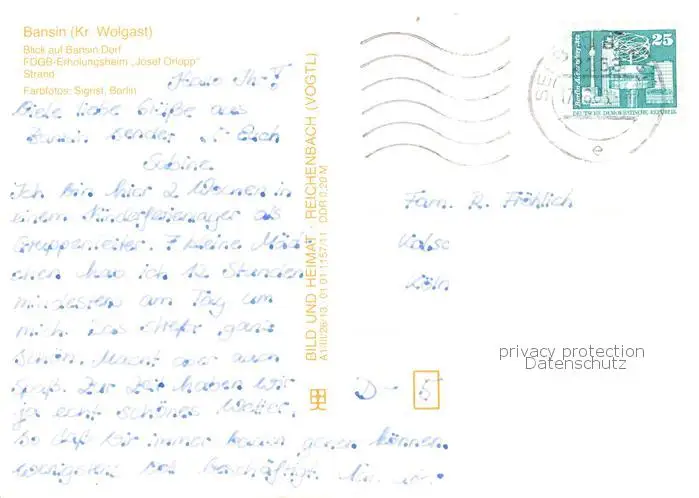 Bansin (Kr. Wolgast)
Blick auf Bansin Dorf
FDGB-Erholungsheim „Josef Orlopp"
Strand
Farbfotos: Signst, Berlin
Viele liebe Grüße aus
Bansin sendet Euch
Sabine
Ich bin hier 2 Wochen in
einem Kinderferienlager als
Gruppenleiter. 7 kleine Mäd-
chen hab ich 12 Stunden
mindestens am Tag um
mich. Das ganz
schön. Macht aber auch
Spaß. Zur Zeit haben wir
ja echt schönes Wetter,
so daß wir immer baden gehen können.
wenigstens beschäftigt
BILD UND HEIMAT · REICHENBACH (VOGTL)
A1/III/26/13 01 01 1157/11 DDR 0,20 M
25
DEUTSCHE DEMOKRATISCHE REPUBLIK
Fam. R. Fröhlich
Köln
D- 5
privacy protection
Datenschutz